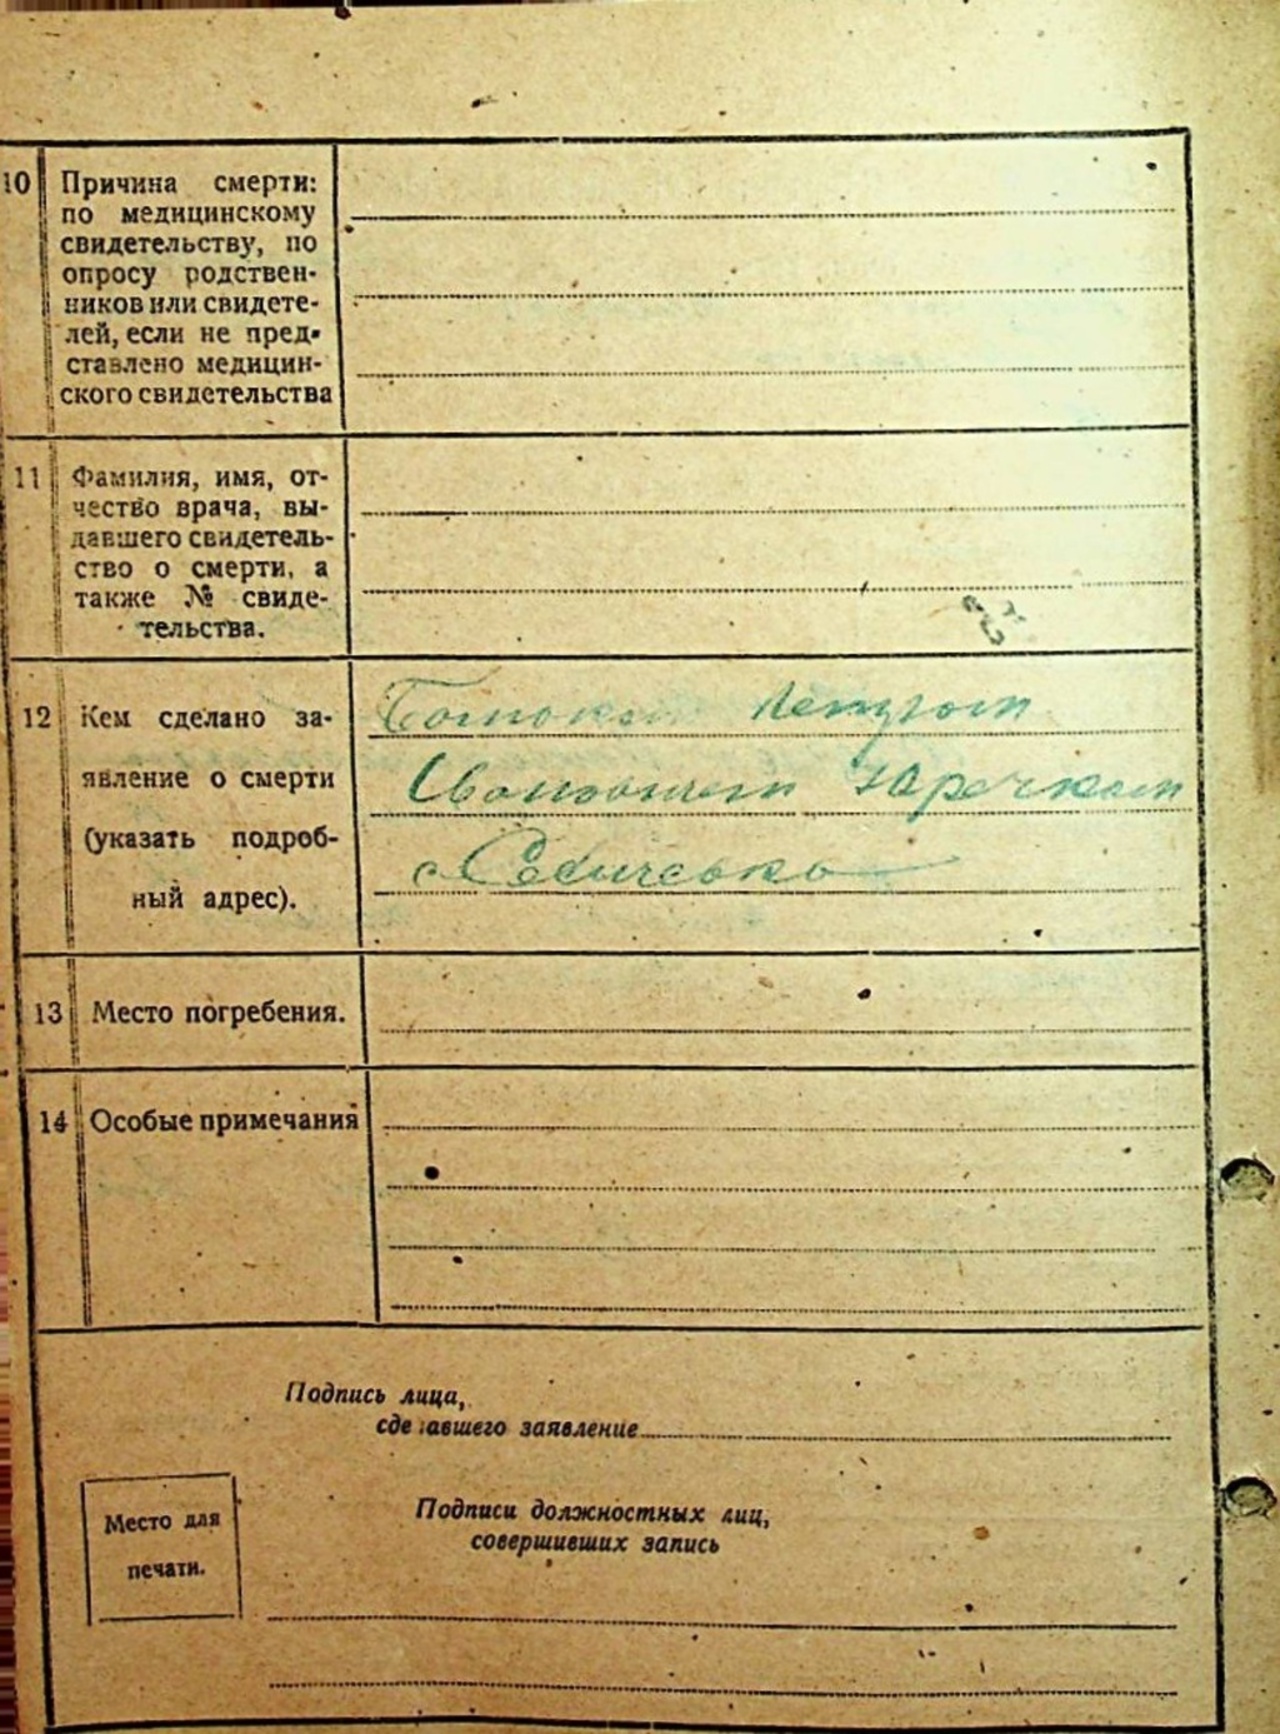 10 Причина смерти:
по медицинскому
свидетельству, по
опросу родствен-
ников или свидете-
лей, если не пред-
ставлено медицин-
ского свидетельства
11 Фамилия, имя, от-
чество врача, вы-
давшего свидетель-
ство о смерти, а
также № свиде-
тельства.
12 Кем сделано за-
явление о смерти
(указать подроб-
ный адрес).
Батьком Петром
Ивановичем Яречким
13 Место погребения.
14 Особые примечания
Подпись лица,
сде авшего заявление
Место для
печати.
Подписи должностных лиц,
совершивших запись